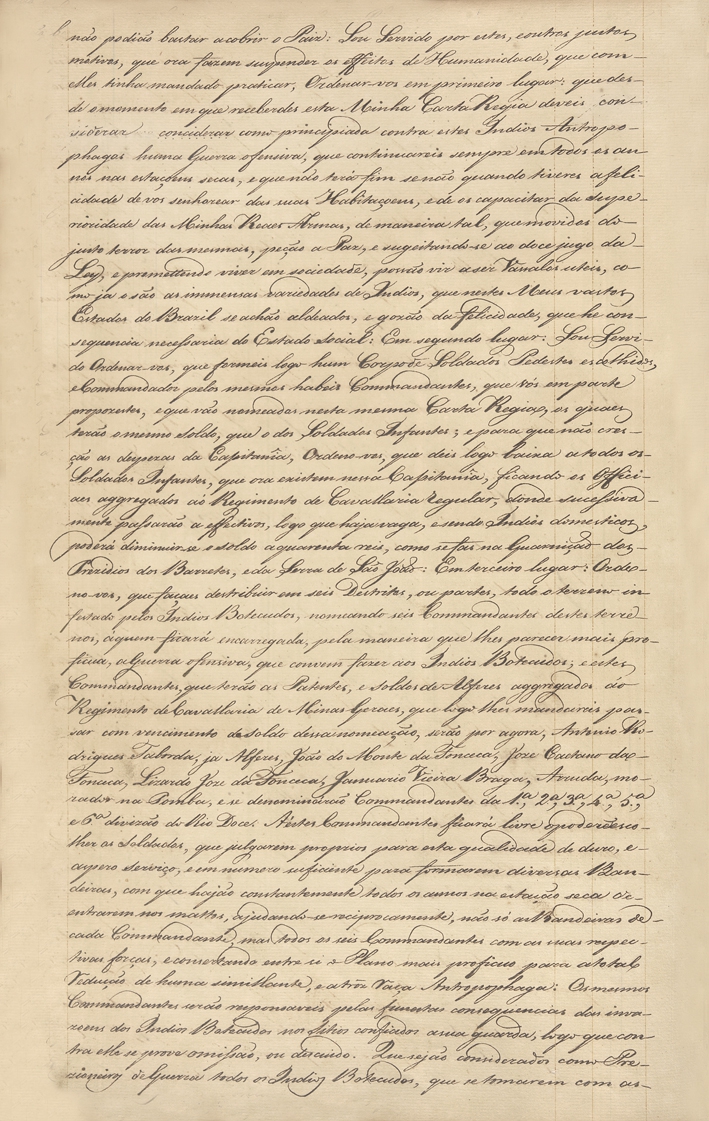 não podião bastar a cobrir o Paiz: Sou Servido por estes, e outros justos
motivos, que ora fazem suspender os effeitos de Humanidade, que com
elles tinha mandado praticar, Ordenar-vos em primeiro lugar: que des-
de o momento em que receberdes esta Minha Carta Regia deveis con-
siderar considerar como principiada contra estes Indios Antropo-
phagos huma Guerra ofensiva, que continuareis sempre em todos os an-
nos nas estaçoens secas, e que não terá fim senão quando tiveres a feli-
cidade de vos senhorear das suas Habitaçoens, e de os capacitar da supe-
rioridade das Minhas Reaes Armas, de maneira tal, que movidos do
justo terror das mesmas, peção a Paz, e sugeitando-se ao doce jugo da
Ley, e promettendo viver em sociedade, possão vir a ser Vassalos uteis, co-
mo ja o são as immensas variedades de Indios, que nestes Meus vastos
Estados do Brazil se achão aldeados, e gozão da felicidade, que he con-
sequencia necessaria do Estado social: Em segundo lugar: Sou Servi-
do Ordenar-vos, que formeis logo hum Corpo de Soldados Pedestes escolhidos,
e Commandados pelos mesmos habeis Commandantes, que vós em parte
propozestes, e que vão nomeados nesta mesma Carta Regia, os quaes
terão o mesmo soldo, que o dos Soldados Infantes; e para que não cres-
ção as despezas da Capitania, Ordeno-vos, que deis logo baixa a todos os
Soldados Infantes, que ora existem nessa Capitania, ficando os Offici-
aes aggregados áo Regimento de Cavallaria regular, donde sucessiva-
mente passarão a effectivos, logo que haja vaga, e sendo Indios domesticos,
poderá diminuir-se o soldo a quarenta reis, como se fas na Guarnição dos
Prezidios dos Barretos, e da Serra de São João: Em terceiro lugar: Orde-
no-vos, que façaes destribuir em seis Destritos, ou partes, todo o terreno in-
festado pelos Indios Botecudos, nomeando seis Commandantes destes terre-
nos, á quem ficará encarregada, pela maneira que lhes parecer mais pro-
ficua, a Guerra ofensiva, que convem fazer aos Indios Botecudos; e estes
Commandantes, que terão as Patentes, e soldos de Alferes aggregados áo
Regimento de Cavallaria de Minas Geraes, que logo lhes mandareis pas-
sar com vencimento de soldo dessa nomeação, serão por agora, Antonio Ro-
drigues Taborda, ja Alferes, João do Monte da Fonceca, Joze Caetano da
Fonceca, Lizardo Joze da Fonceca, Januario Vieira Braga, Arruda, mo-
rador na Pomba, e se denominarão Commandantes da 1ª, 2ª, 3ª, 4ª, 5ª,
e 6ª divizão do Rio Doce. A estes Commandantes ficará livre o poder esco-
lher os Soldados, que julgarem proprios para esta qualidade de duro, e
aspero serviço, e em numero suficiente para formarem diversas Ban-
deiras, com que hajão constantemente todos os annos na estação seca de
entrarem nos mattos, ajudando-se reciprocamente, não só as Bandeiras de
cada Commandante, mas todos os seis Commandantes com as suas respec-
tivas forças, e concertando entre si o Plano mais proficuo para a total
Reducção de huma similhante, e atros raça Antropophaga: Os mesmos
Commandantes serão responsaveis pelas funestas consequencias das inva-
zoens dos Indios Botecudos nos sitios confiados a sua guarda, logo que con-
tra elle se prove omissão, ou descuido. Que sejão considerados como Pre-
zioneiros de Guerra todos os Indios Botecudos, que se tomarem com as-